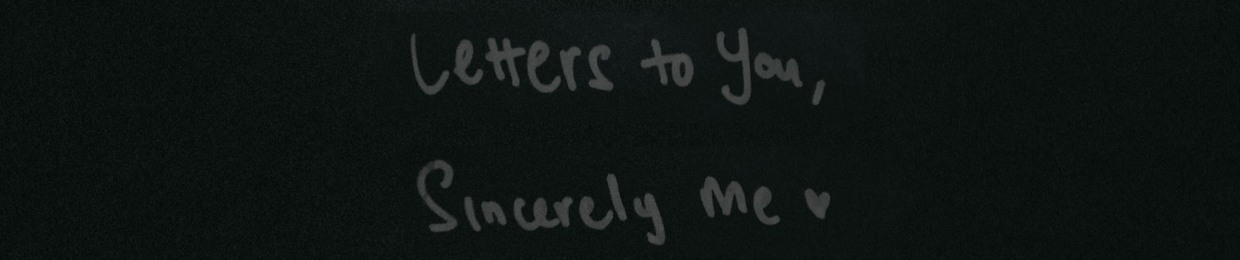 Letters to You,
Sincerely Me ♥